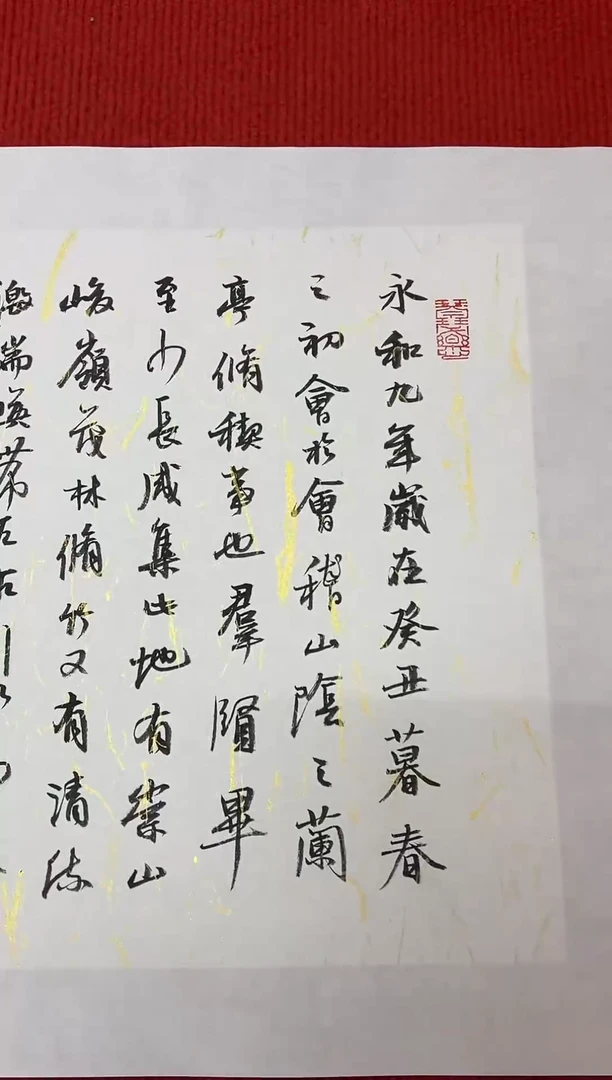 永和九年歲在癸丑暮春
之初會於會稽山陰之蘭
亭脩稧事也羣賢畢
至少長咸集此地有崇山
峻嶺茂林脩竹又有清流
激湍暎帶左右引